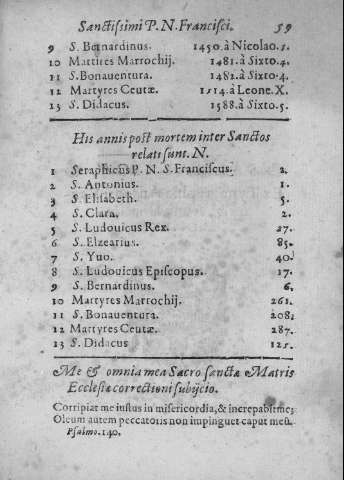 Sanctissimi P. N. Francisci. 59
9 S. Bernardinus. 1450. à Nicolao. 5.
10 Martires Marrochij. 1481. à Sixto. 4.
11 S. Bonauentura. 1482. à Sixto. 4.
12 Martyres Ceutæ. 1514. à Leone. X.
13 S. Didacus. 1588. à Sixto. 5.
His annis post mortem inter Sanctos
relati sunt. N.
1 Seraphicus P. N. S. Franciscus. 2.
2 S. Antonius. 1.
3 S. Elisabeth. 5.
4 S. Clara. 2.
5 S. Ludouicus Rex. 27.
6 S. Elzearius. 85.
7 S. Yuo. 40.
8 S. Ludouicus Episcopus. 17.
9 S. Bernardinus. 6.
10 Martyres Marrochij. 261.
11 S. Bonauentura. 208.
12 Martyres Ceutæ. 287.
13 S. Didacus 125.
Me & omnia mea Sacrosanctæ Matris
Ecclesiæ correctioni subijcio.
Corripiat me iustus in misericordia, & increpabit me;
Oleum autem peccatoris non impinguet caput meũ.
Psalmo. 140.